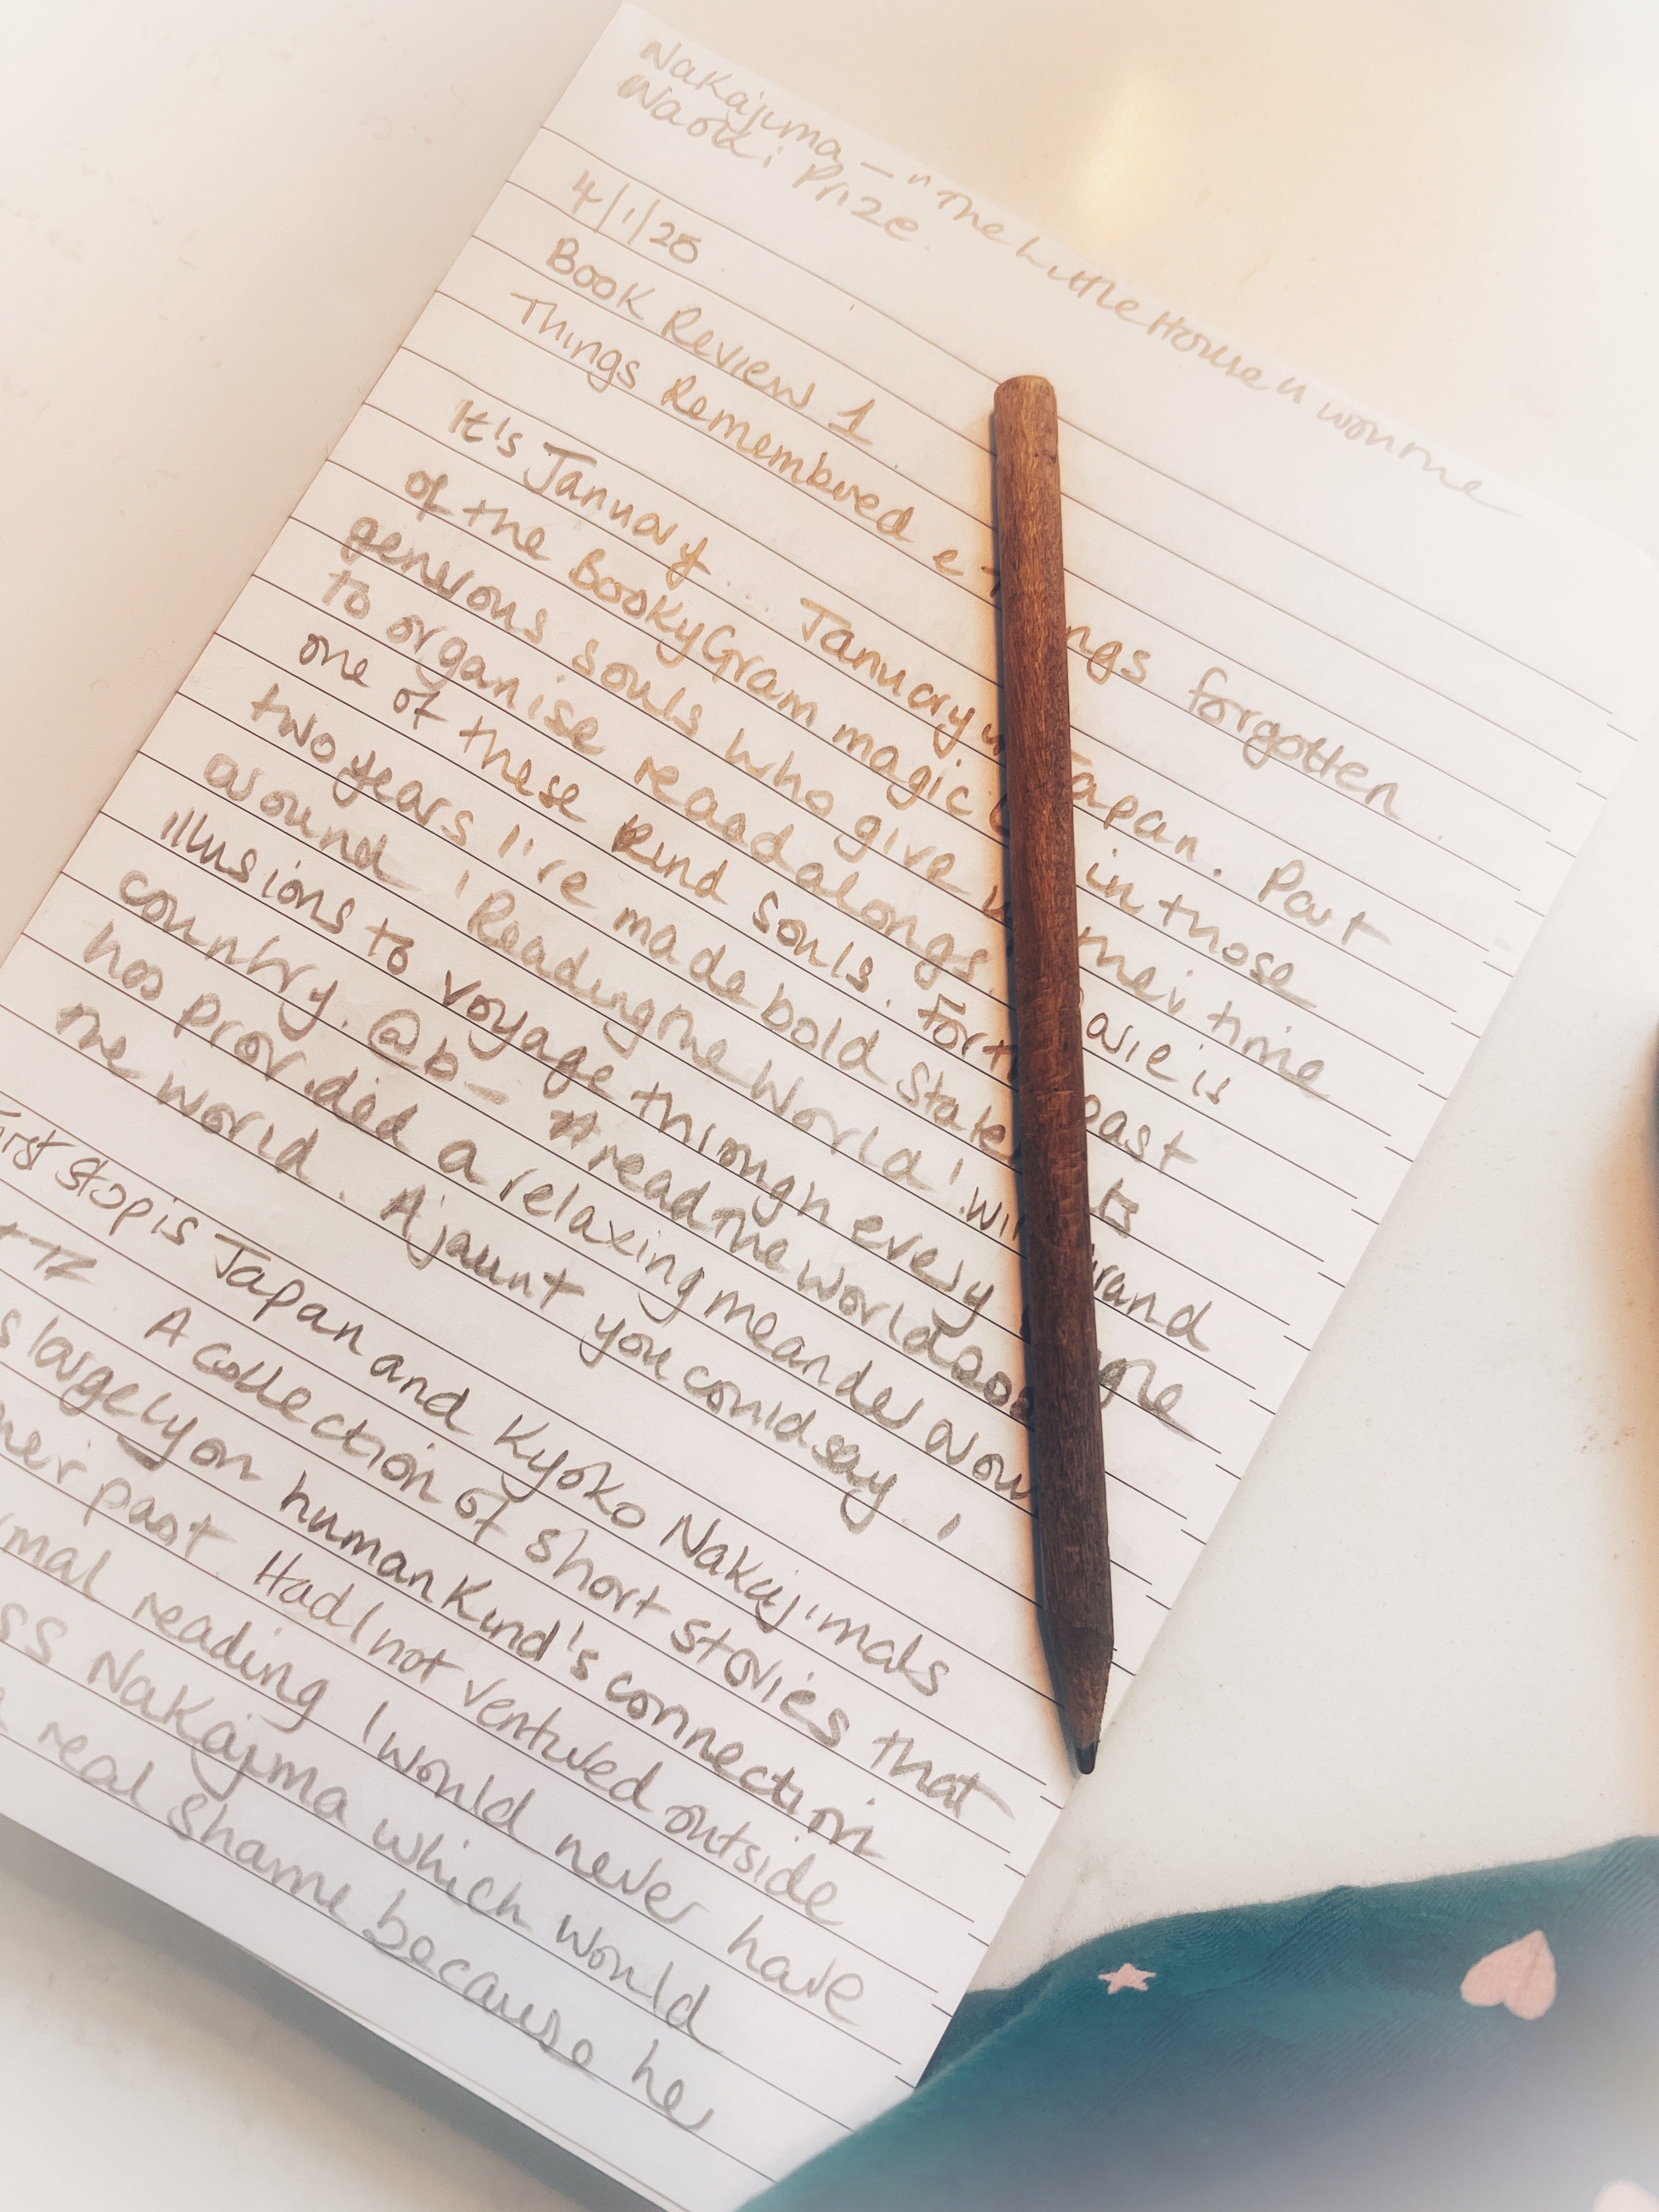 Nakajima - "The Little House" won the
Naoki Prize.
4/1/25
Book Review 1.
Things Remembered & ngs forgotten.
It's January... January in Japan. Part
of the BookyGram magic in those
generous souls who give their time
to organise readalongs. is
one of these kind souls. For past
two years I've made bold
around 'Reading the World'. rand
illusions to voyage through every
country. @b- #readtheworld
has provided a relaxing meander
the world. A jaunt you could say!
First stop is Japan and Kyoko Nakajima's
TR&TF A collection of short stories that
largely on humankind's connection
their past. Had I not ventured outside
reading I would never have
Nakajima which would
real shame because he